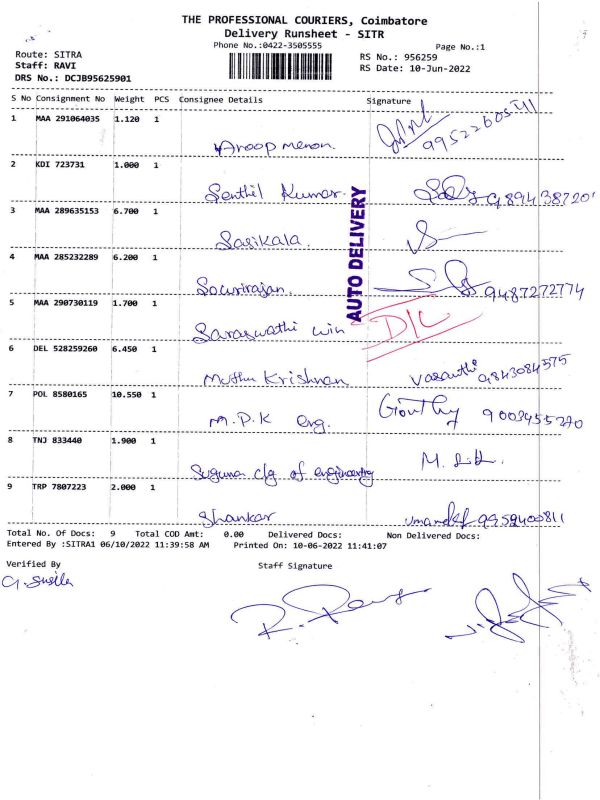 THE PROFESSIONAL COURIERS, Coimbatore
Delivery Runsheet - SITR
Phone No.:0422-3505555
Page No.:1
Route: SITRA
Staff: RAVI
DRS No.: DCJB95625901
RS No.: 956259
RS Date: 10-Jun-2022
S No Consignment No Weight PCS Consignee Details Signature
1 MAA 291064035 1.120 1
Aroop menon
2 KDI 723731 1.000 1
Senthil Kumar.
3 MAA 289635153 6.700 1
Sasikala.
4 MAA 285232289 6.200 1
Sowrirajan. 9487272774
5 MAA 290730119 1.700 1
Saraswathi win
AUTO DELIVERY
6 DEL 528259260 6.450 1
Muthu Krishnan Vasanthi 9843084575
7 POL 8580165 10.550 1
M.P.K eng. Gouthy 9003455270
8 TNJ 833440 1.900 1
Suguna clg of engineering
9 TRP 7807223 2.000 1
Shankar 9959400811
Total No. Of Docs: 9 Total COD Amt: 0.00 Delivered Docs: Non Delivered Docs:
Entered By :SITRA1 06/10/2022 11:39:58 AM Printed On: 10-06-2022 11:41:07
Verified By Staff Signature